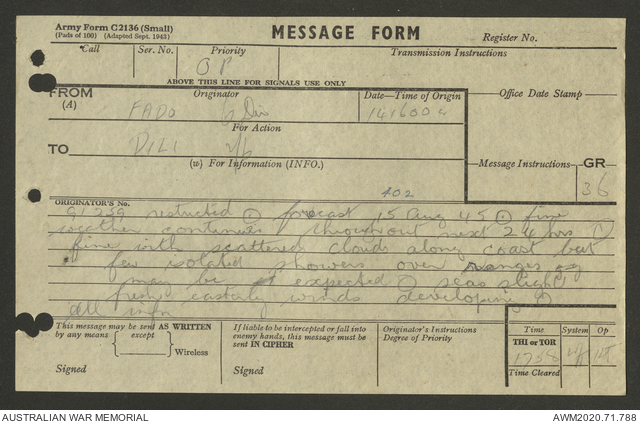 Army Form C2136 (Small)
(Pads of 100) (Adapted Sept. 1943)
MESSAGE FORM
Register No.
Call
Ser. No.
Priority
Transmission Instructions
OP
ABOVE THIS LINE FOR SIGNALS USE ONLY
FROM
(A)
Originator
Date—Time of Origin
Office Date Stamp
FADO
141600
For Action
TO
DILI
(W) For Information (INFO.)
Message Instructions
GR
36
402
ORIGINATOR'S No.
restricted forecast 15 Aug 45 fine
weather continues throughout next 24 hrs
fine with scattered clouds along coast but
few isolated showers over ranges
may be expected seas slight
fresh easterly winds developing
all infm
This message may be sent AS WRITTEN
by any means
except
Wireless
Signed
If liable to be intercepted or fall into
enemy hands, this message must be
sent IN CIPHER
Signed
Originator's Instructions
Degree of Priority
Time
System
Op
THI or TOR
1758
Time Cleared
AUSTRALIAN WAR MEMORIAL
AWM2020.71.788